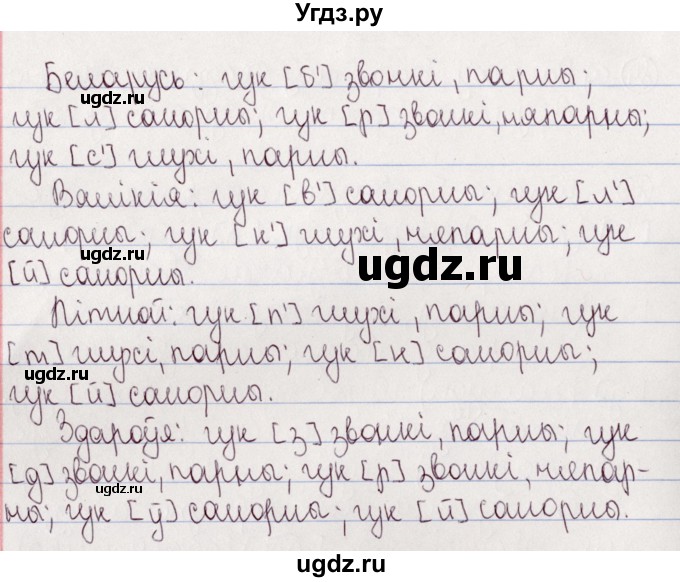 Угдз.ру
Беларусь: гук [б'] звонкі, парны;
гук [л] санорны; гук [р] звонкі, няпарны;
гук [с'] глухі, парны.
Вялікія: гук [в'] санорны; гук [л']
санорны; гук [к'] глухі, няпарны; гук
[й] санорны.
Пітной: гук [п'] глухі, парны; гук
[т] глухі, парны; гук [н] санорны;
гук [й] санорны.
Здароўя: гук [з] звонкі, парны; гук
[д] звонкі, парны; гук [р] звонкі, няпар-
ны; гук [ў] санорны; гук [й] санорны.
ugdz.ru
ugdz.ru
ugdz.ru
ugdz.ru
ugdz.ru
ugdz.ru